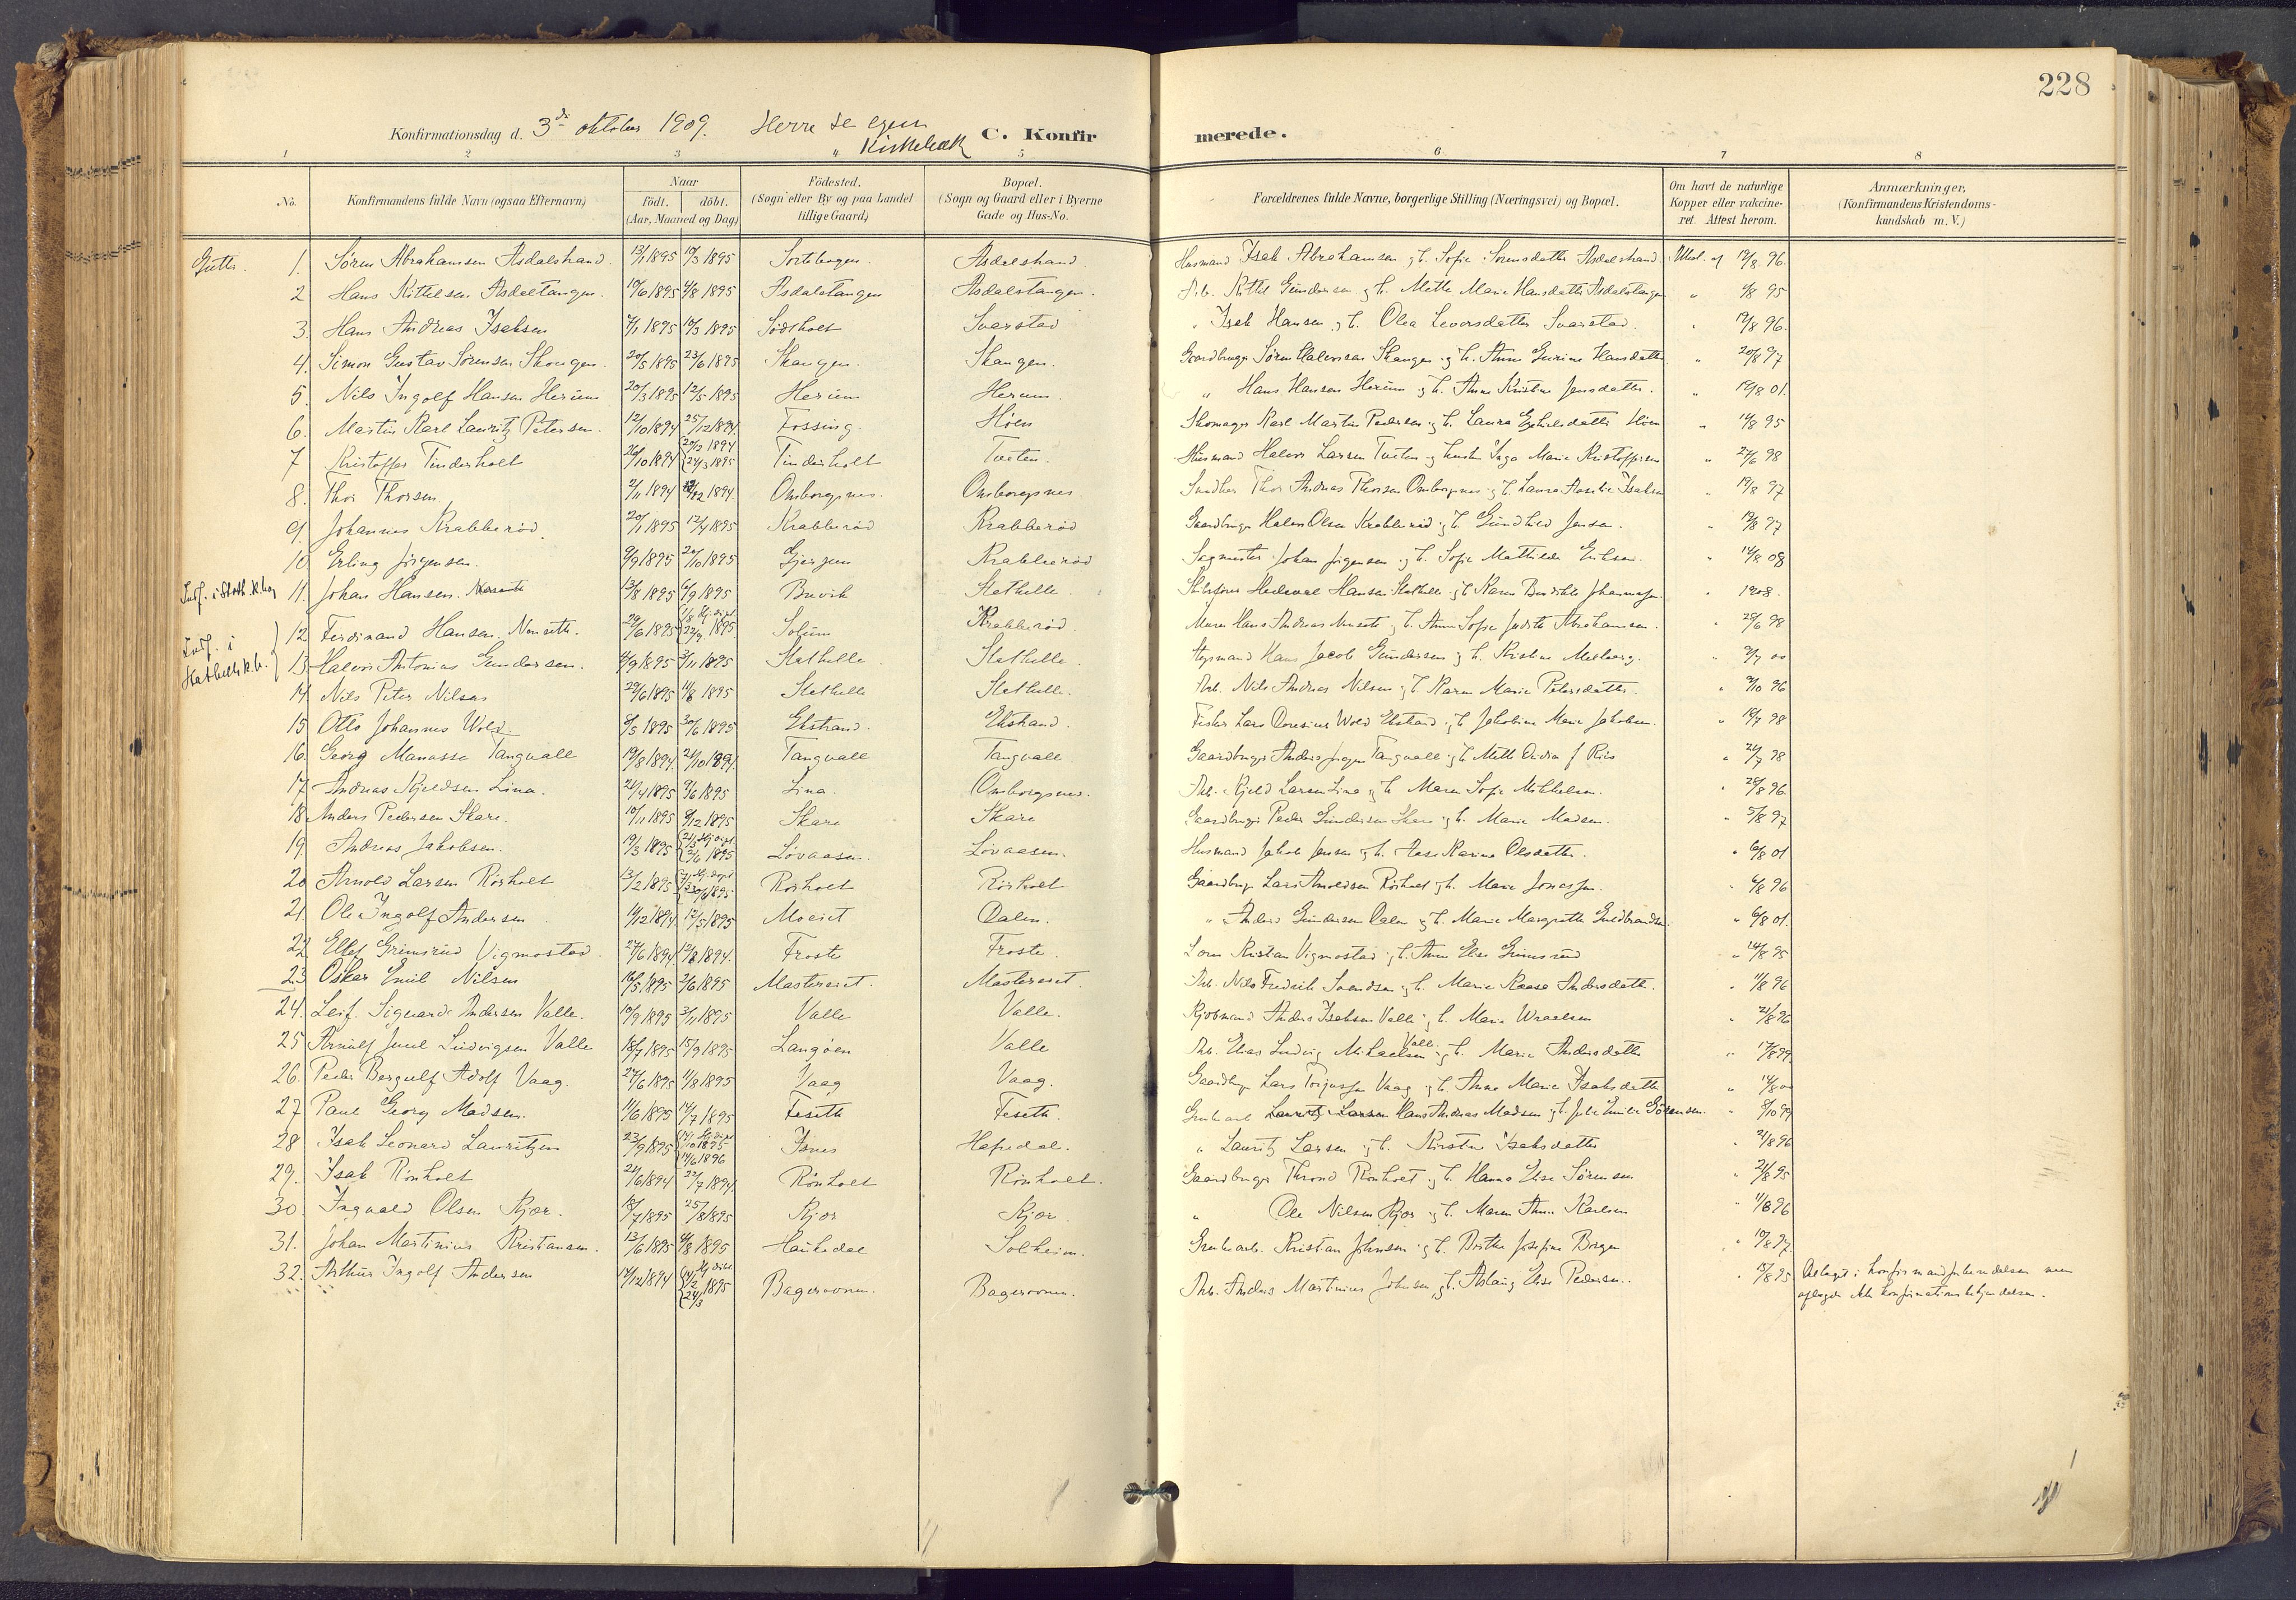 228
Konfirmationsdag d. 3de oktober 1909. Herre se egen
" Kirkebok C. Konfirmerede.
1 2 3 5 6 7 8
No. Konfirmandens fulde Navn (ogsaa Efternavn) Naar födt. döbt. (Aar, Maaned og Dag) Födested. (Sogn eller By og paa Landet tillige Gaard) Bopæl. (Sogn og Gaard eller i Byerne Gade og Hus-No. Forældrenes fulde Navne, borgerlige Stilling (Næringsvei) og Bopæl. Om havt de naturlige Kopper eller vakcineret. Attest herom. Anmærkninger, (Konfirmandens Kristendomskundskab m. V.)
Gutter. 1. Søren Abrahamsen Asdalstrand. 13/1 1895 10/3 1895 Sortebogen. Asdalstrand. Husmand Isak Abrahamsen og h. Sofie Sørensdatter Asdalstrand. Attest af 12/8 96.
2 Hans Kittelsen Asdaltangen. 10/6 1895 4/8 1895 Asdalstangen Asdalstangen. Arb. Kittel Gundersen og h. Mette Marie Hansdatter Asdalstangen " 4/8 95
3. Hans Andreas Isaksen 7/1 1895 10/3 1895 Sødtholt Svarstad " Isak Hansen og h. Olea Leversdatter Svarstad. " 12/8 96.
4. Simon Gustav Sørensen Skougen. 20/5 1895 23/6 1895 Skaugen. Skaugen. Gaardbruger Søren Halvorsen Skaugen og h. Anne Gurine Hansdatter " 20/8 97
5. Nils Ingolf Hansen Herum 20/3 1895 12/5 1895 Herum Herum. " Hans Hansen Herum og h. Anne Kristine Jensdatter. " 19/8 01.
6. Martin Karl Lauritz Petersen. 12/10 1894 25/12 1894. Fossing. Høen Skomager Karl Martin Pedersen og h. Laura Ezekielsdatter Høen " 14/8 95
7 Kristoffer Tinderholt 26/10 1894 {26/12 1894 24/3 1895 Tinderholt Tveten. Husmand Halvor Larsen Tveten og hustru Inga Marie Kristoffersen " 27/6 98
8. Thor Thorsen. 2/11 1894 12/12 1894. Ombogsnes. Omborgsnes Thor Andreas Thorsen Omborgsnes og h. Laura Isaksen " 19/8 97
9. Johannes Krabberød. 20/1 1895 12/4 1895 Krabberød Krabberød Gaardbruger Halvor Olsen Krabberød og h. Gundhild Jensen. " 12/8 97
10 Erling Jørgensen. 9/9 1895 20/10 1895 Gjerpen Krabberød Sagmester Johan Jørgensen og h. Sofie Mathilde Eriksen. " 14/8 08
Indf. i Stath. K.bog 11. Johan Hansen. 13/8 1895 6/9 1895 Brevik Stathelle. Hansen Stathelle og h. Karen Johannesen. " 1908.
Indf. i Stathelle K.b. 12. Ferdinand Hansen Nenseth. 29/6 1895 1895 Solum Krabberød. Murer Hans Andreas Nenseth og h. Anne Sofie Judith Abrahamsen. " 28/6 98
13 Halvor Antonius Gundersen. 4/9 1895 3/11 1895 Stathelle Stathelle. Hans Jacob Gundersen og h. Kristine Melberg. " 9/7 00
14 Nils Peter Nilsen 29/6 1895 4/8 1895 Stathelle Stathelle. Arb. Nils Andreas Nilsen og h. Karen Marie Petersdatter. " 9/10 96
15 Otto Johannes Wold. 8/5 1895 30/6 1895 Ekstrand. Ekstrand. Fisker Lars Wold Ekstrand og h. Jakobine Marie Jakobsen. " 18/7 98
16. Georg Manasse Tangvalle 19/8 1894. 21/10 1894. Tangvalle Tangvalle Gaardbruger Anders Tangvalle og h. Mette " 21/7 98
17. Andreas Kjeldsen Lina. 26/4 1895 9/6 1895 Lina. Omborgsnes. Arb. Kjeld Larsen Lina og h. Maren Sofie Mikkelsen. " 28/8 96.
18 Anders Pedersen Skare. 10/11 1895 8/12 1895 Skare Skare Gaardbruger Peder Gundersen Skare og h. Marie Madsen. " 5/8 97
19 Andreas Jakobsen. 19/3 1895 1895 Løvaasen. Løvaasen. Husmand Jakob Jensen og h. Karine Olsdatter. " 6/8 01
20 Arnold Larsen Rørholt 13/2 1895 30/6 1895 Rørholt Rørholt Gaardbruger Lars Arnoldsen Rørholt og h. Marie Jonassen. " 4/8 96
21. Ole Ingolf Andersen 11/12 1894. 12/5 1895 Moeset Dalen. " Anders Gundersen Dalen og h. Maren Margrethe Guldbrandsen. " 6/8 01.
22 Ellef Grimsrud Vigmostad. 27/6 1894 12/8 1894. Froste Froste. Kristian Vigmostad og h. Anne Else Grimsrud " 14/8 95
23 Oskar Emil Nilsen 16/5 1895 2/6 1895 Mastereset. Mastereset. Arb. Nils Fredrik Svendsen og h. Marie Andersdatter. " 11/8 96
24. Leif Sigvard Andersen Valle. 10/9 1895 3/11 1895 Valle Valle. Kjøbmand Anders Isaksen Valle og h. Maria Wraalsen " 21/8 96
25 Arnulf Juul Ludvigsen Valle 18/7 1895 15/9 1895 Langøen Valle Arb. Elias Ludvig Mikaelsen Valle og h. Marie Andersdatter " 17/8 99
26. Peder Bergulf Adolf Vaag. 27/6 1895 11/8 1895 Vaag Vaag. Gaardbruger Lars Torjussen Vaag og h. Anne Marie Isaksdatter " 14/8 00
27 Paul Georg Madsen. 11/6 1895 14/7 1895 Feseth Feseth. Grubearb. Lauritz Larsen Hans Andreas Madsen og h. Julie Emilie Gøransen. " 8/10 99
28 Isak Leonard Lauritzen 23/9 1895 1895 14/6 1896 Isnes Hafsdal. " Lauritz Larsen og h. Kirstine Isaksdatter " 21/8 96
29. Isak Rønholt 21/6 1894 22/7 1894. Rønholt Rønholt. Gaardbruger Thrond Rønholt og h. Hanna Elise Sørensen " 21/8 95
30. Ingvald Olsen Kjør. 18/7 1895 25/8 1895 Kjør Kjør. " Ole Nilsen Kjør og h. Maren Anne Karlsen " 11/8 96
31. Johan Martinius Kristiansen. 13/6 1895 4/8 1895 Haukedal Solheim. Grubearb. Kristian Johnsen og h. Berthe Josefine Borgen " 10/8 97.
32. Arthur Ingolf Andersen 14/12 1894 1895 24/3 Bagerovnen. Bagerovnen. Arb. Anders Martinius Johnsen og h. Aslaug Elise Pedersen. " 15/8 95 Deltaget i konfirmandforberedelsen men
aflagde ikke konfirmationsbekjendelsen.